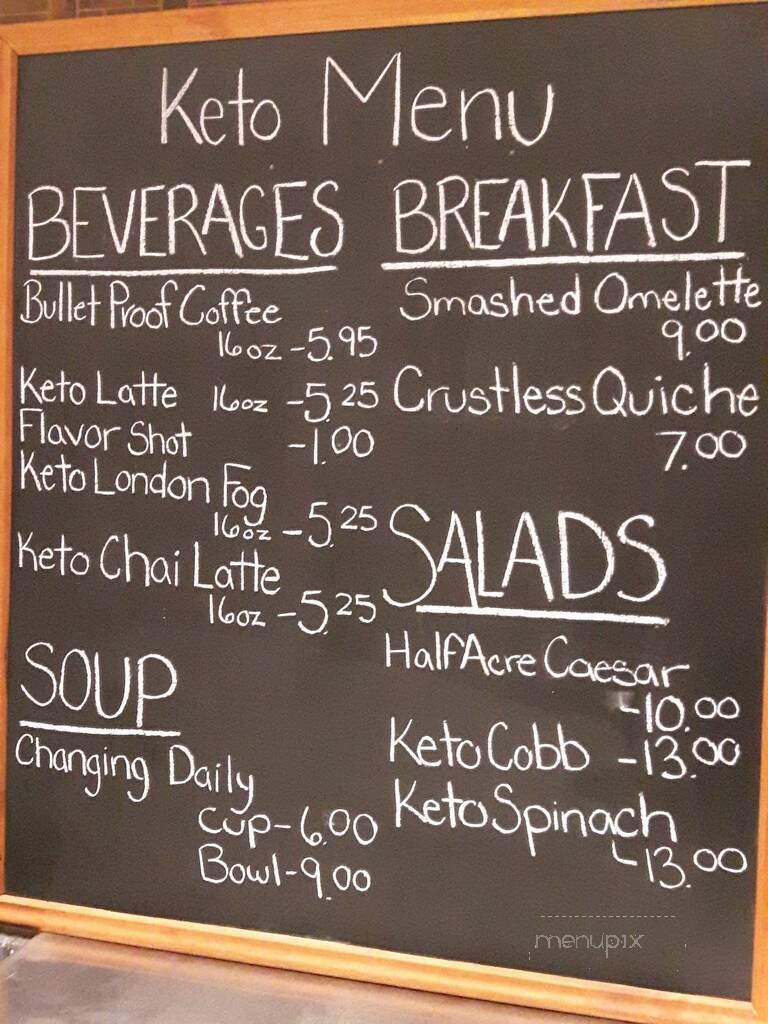 Keto Menu
BEVERAGES
Bullet Proof Coffee
16oz -5.95
Keto Latte 16oz -5.25
Flavor Shot -1.00
Keto London Fog
16oz -5.25
Keto Chai Latte
16oz -5.25
SOUP
Changing Daily
Cup- 6.00
Bowl-9.00
BREAKFAST
Smashed Omelette
9.00
Crustless Quiche
7.00
SALADS
Half Acre Caesar
-10.00
Keto Cobb -13.00
Keto Spinach
-13.00
menupix